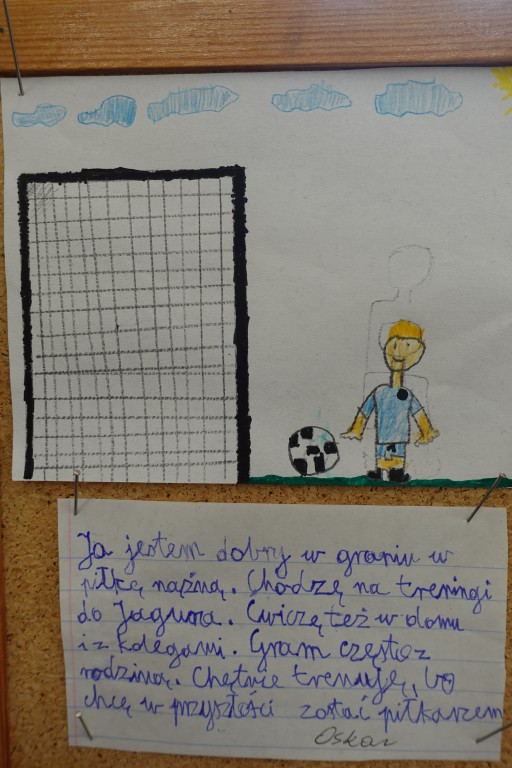 Ja jestem dobry w graniu w
piłkę nażną. Chodzę na treningi
do Jaguara. Ćwiczę też w domu
i z kolegami. Gram często z
rodziną. Chętnie trenuję, bo
chcę w przyszłości zostać piłkarzem
Oskar